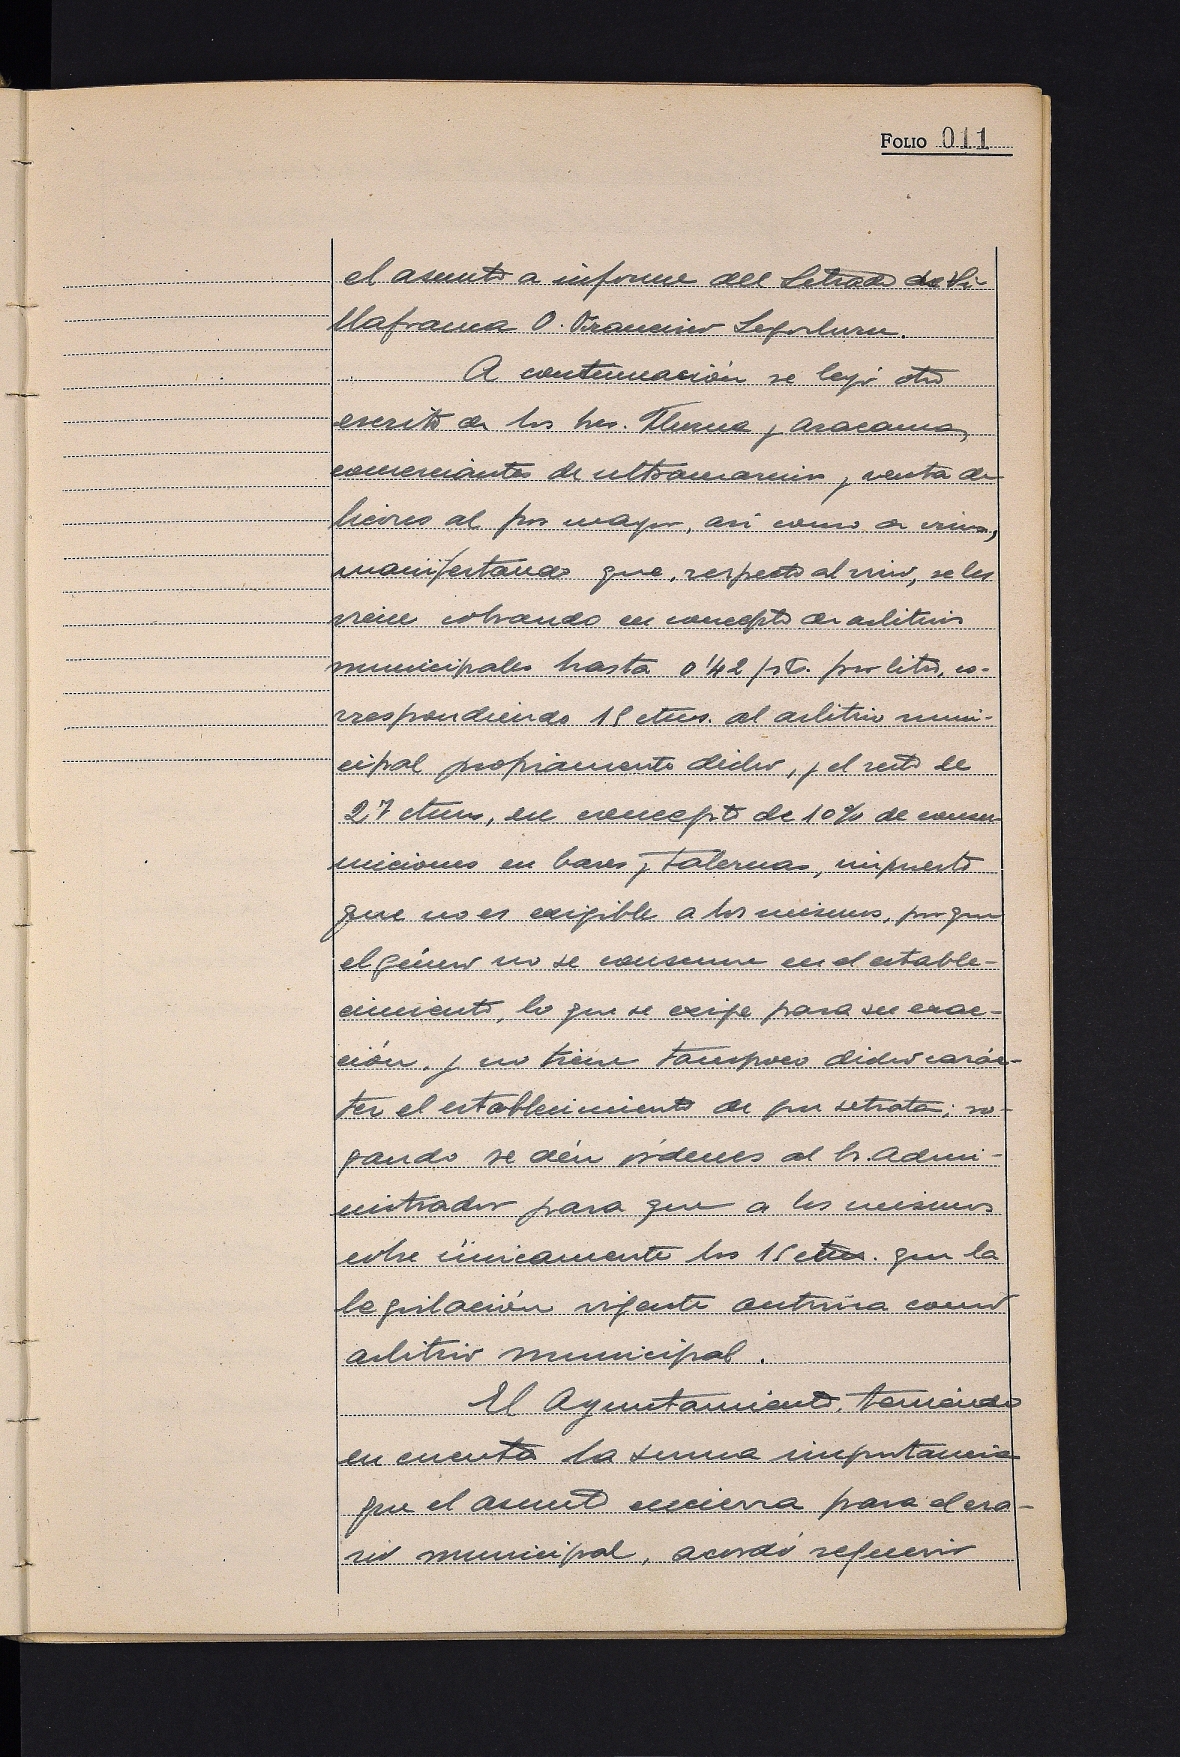 FOLIO 011
el asunto a informe del Letrado de Vi-
llafranca D. Francisco Legorburu.
A continuación se leyó otro
escrito de los Sres. y Aracama,
comerciantes de ultramarinos y venta de
licores al por mayor, así como de vinos,
manifestando que, respecto al vino, se les
viene cobrando en concepto de arbitrios
municipales hasta 0'42 pts. por litro, co-
rrespondiendo 15 ctms. al arbitrio muni-
cipal propiamente dicho, y el resto de
27 ctms, en concepto de 10% de consu-
miciones en bares y tabernas, impuesto
que no es exigible a los mismos, porque
el género no se consume en el estable-
cimiento, lo que se exige para su exac-
ción, y no tiene tampoco dicho carác-
ter el establecimiento de por se trata; ro-
gando se dén órdenes al Sr. Admi-
nistrador para que a los mismos
cobre únicamente los 15 ctms. que la
legislación vigente autoriza como
arbitrio municipal.
El Ayuntamiento, teniendo
en cuenta la suma importancia
que el asunto encierra para el era-
rio municipal, acordó requerir